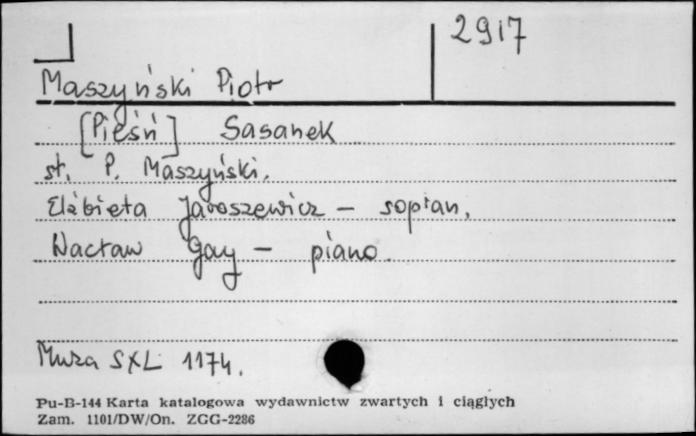 2917
Maszyński Piotr
[Pieśń] Sasanek
sł. P. Maszyński.
Elżbieta Jaroszewicz – sopran.
Wacław Gay – piano.
Muza SXL 1174.
Pu-B-144 Karta katalogowa wydawnictw zwartych i ciągłych
Zam. 1101/DW/On. ZGG-2286